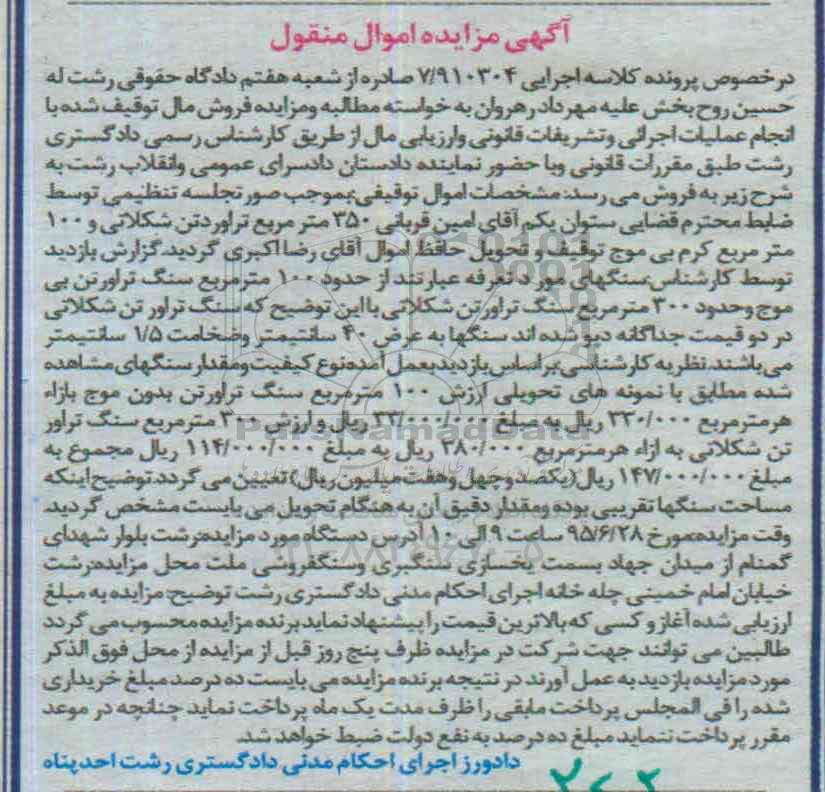 آگهی مزایده اموال منقول
در خصوص پرونده کلاسه اجرایی ۷/۹۱۰۳۰۴ صادره از شعبه هفتم دادگاه حقوقی رشت له
حسین روح بخش علیه مهرداد رهروان به خواسته مطالبه ومزایده فروش مال توقیف شده با
انجام عملیات اجرائی وتشریفات قانونی وارزیابی مال از طریق کارشناس رسمی دادگستری
رشت طبق مقررات قانونی وبا حضور نماینده دادستان دادسرای عمومی وانقلاب رشت به
شرح زیر به فروش می رسد: مشخصات اموال توقیفی:بموجب صورتجلسه تنظیمی توسط
ضابط محترم قضایی ستوان یکم آقای امین قربانی ۳۵۰ متر مربع تراوردتن شکلاتی و ۱۰۰
متر مربع کرم بی موج توقیف و تحویل حافظ اموال آقای رضا اکبری گردید.گزارش بازدید
توسط کارشناس:سنگهای مورد تعرفه عبارتند از حدود ۱۰۰ مترمربع سنگ تراورتن بی
موج وحدود ۳۰۰ مترمربع سنگ تراورتن شکلاتی با این توضیح که سنگ تراور تن شکلاتی
در دو قیمت جداگانه دپو شده اند سنگها به عرض ۴۰ سانتیمتر وضخامت ۱/۵ سانتیمتر
می باشند.نظریه کارشناسی:براساس بازدید بعمل آمده نوع کیفیت ومقدار سنگهای مشاهده
شده مطابق با نمونه های تحویلی ارزش ۱۰۰ مترمربع سنگ تراورتن بدون موج بازاء
هرمترمربع ۳۳۰/۰۰۰ ریال به مبلغ ۳۳/۰۰۰/۰۰۰ ریال و ارزش ۳۰۰ مترمربع سنگ تراور
تن شکلاتی به ازاء هرمترمربع ۳۸۰/۰۰۰ ریال به مبلغ ۱۱۴/۰۰۰/۰۰۰ ریال مجموع به
مبلغ ۱۴۷/۰۰۰/۰۰۰ ریال(یکصد وچهل وهفت میلیون ریال) تعیین می گردد.توضیح اینکه
مساحت سنگها تقریبی بوده ومقدار دقیق آن به هنگام تحویل می بایست مشخص گردید.
وقت مزایده:مورخ ۹۵/۶/۲۸ ساعت ۹ الی ۱۰ آدرس دستگاه مورد مزایده:رشت بلوار شهدای
گمنام از میدان جهاد بسمت یخسازی سنگبری وسنگفروشی ملت محل مزایده:رشت
خیابان امام خمینی چله خانه اجرای احکام مدنی دادگستری رشت توضیح: مزایده به مبلغ
ارزیابی شده آغاز و کسی که بالاترین قیمت را پیشنهاد نماید برنده مزایده محسوب می گردد
طالبین می توانند جهت شرکت در مزایده ظرف پنج روز قبل از مزایده از محل فوق الذکر
مورد مزایده بازدید به عمل آورند در نتیجه برنده مزایده می بایست ده درصد مبلغ خریداری
شده را فی المجلس پرداخت مابقی را ظرف مدت یک ماه پرداخت نماید چنانچه در موعد
مقرر پرداخت ننماید مبلغ ده درصد به نفع دولت ضبط خواهد شد.
دادورز اجرای احکام مدنی دادگستری رشت احدپناه
ParsNamadData